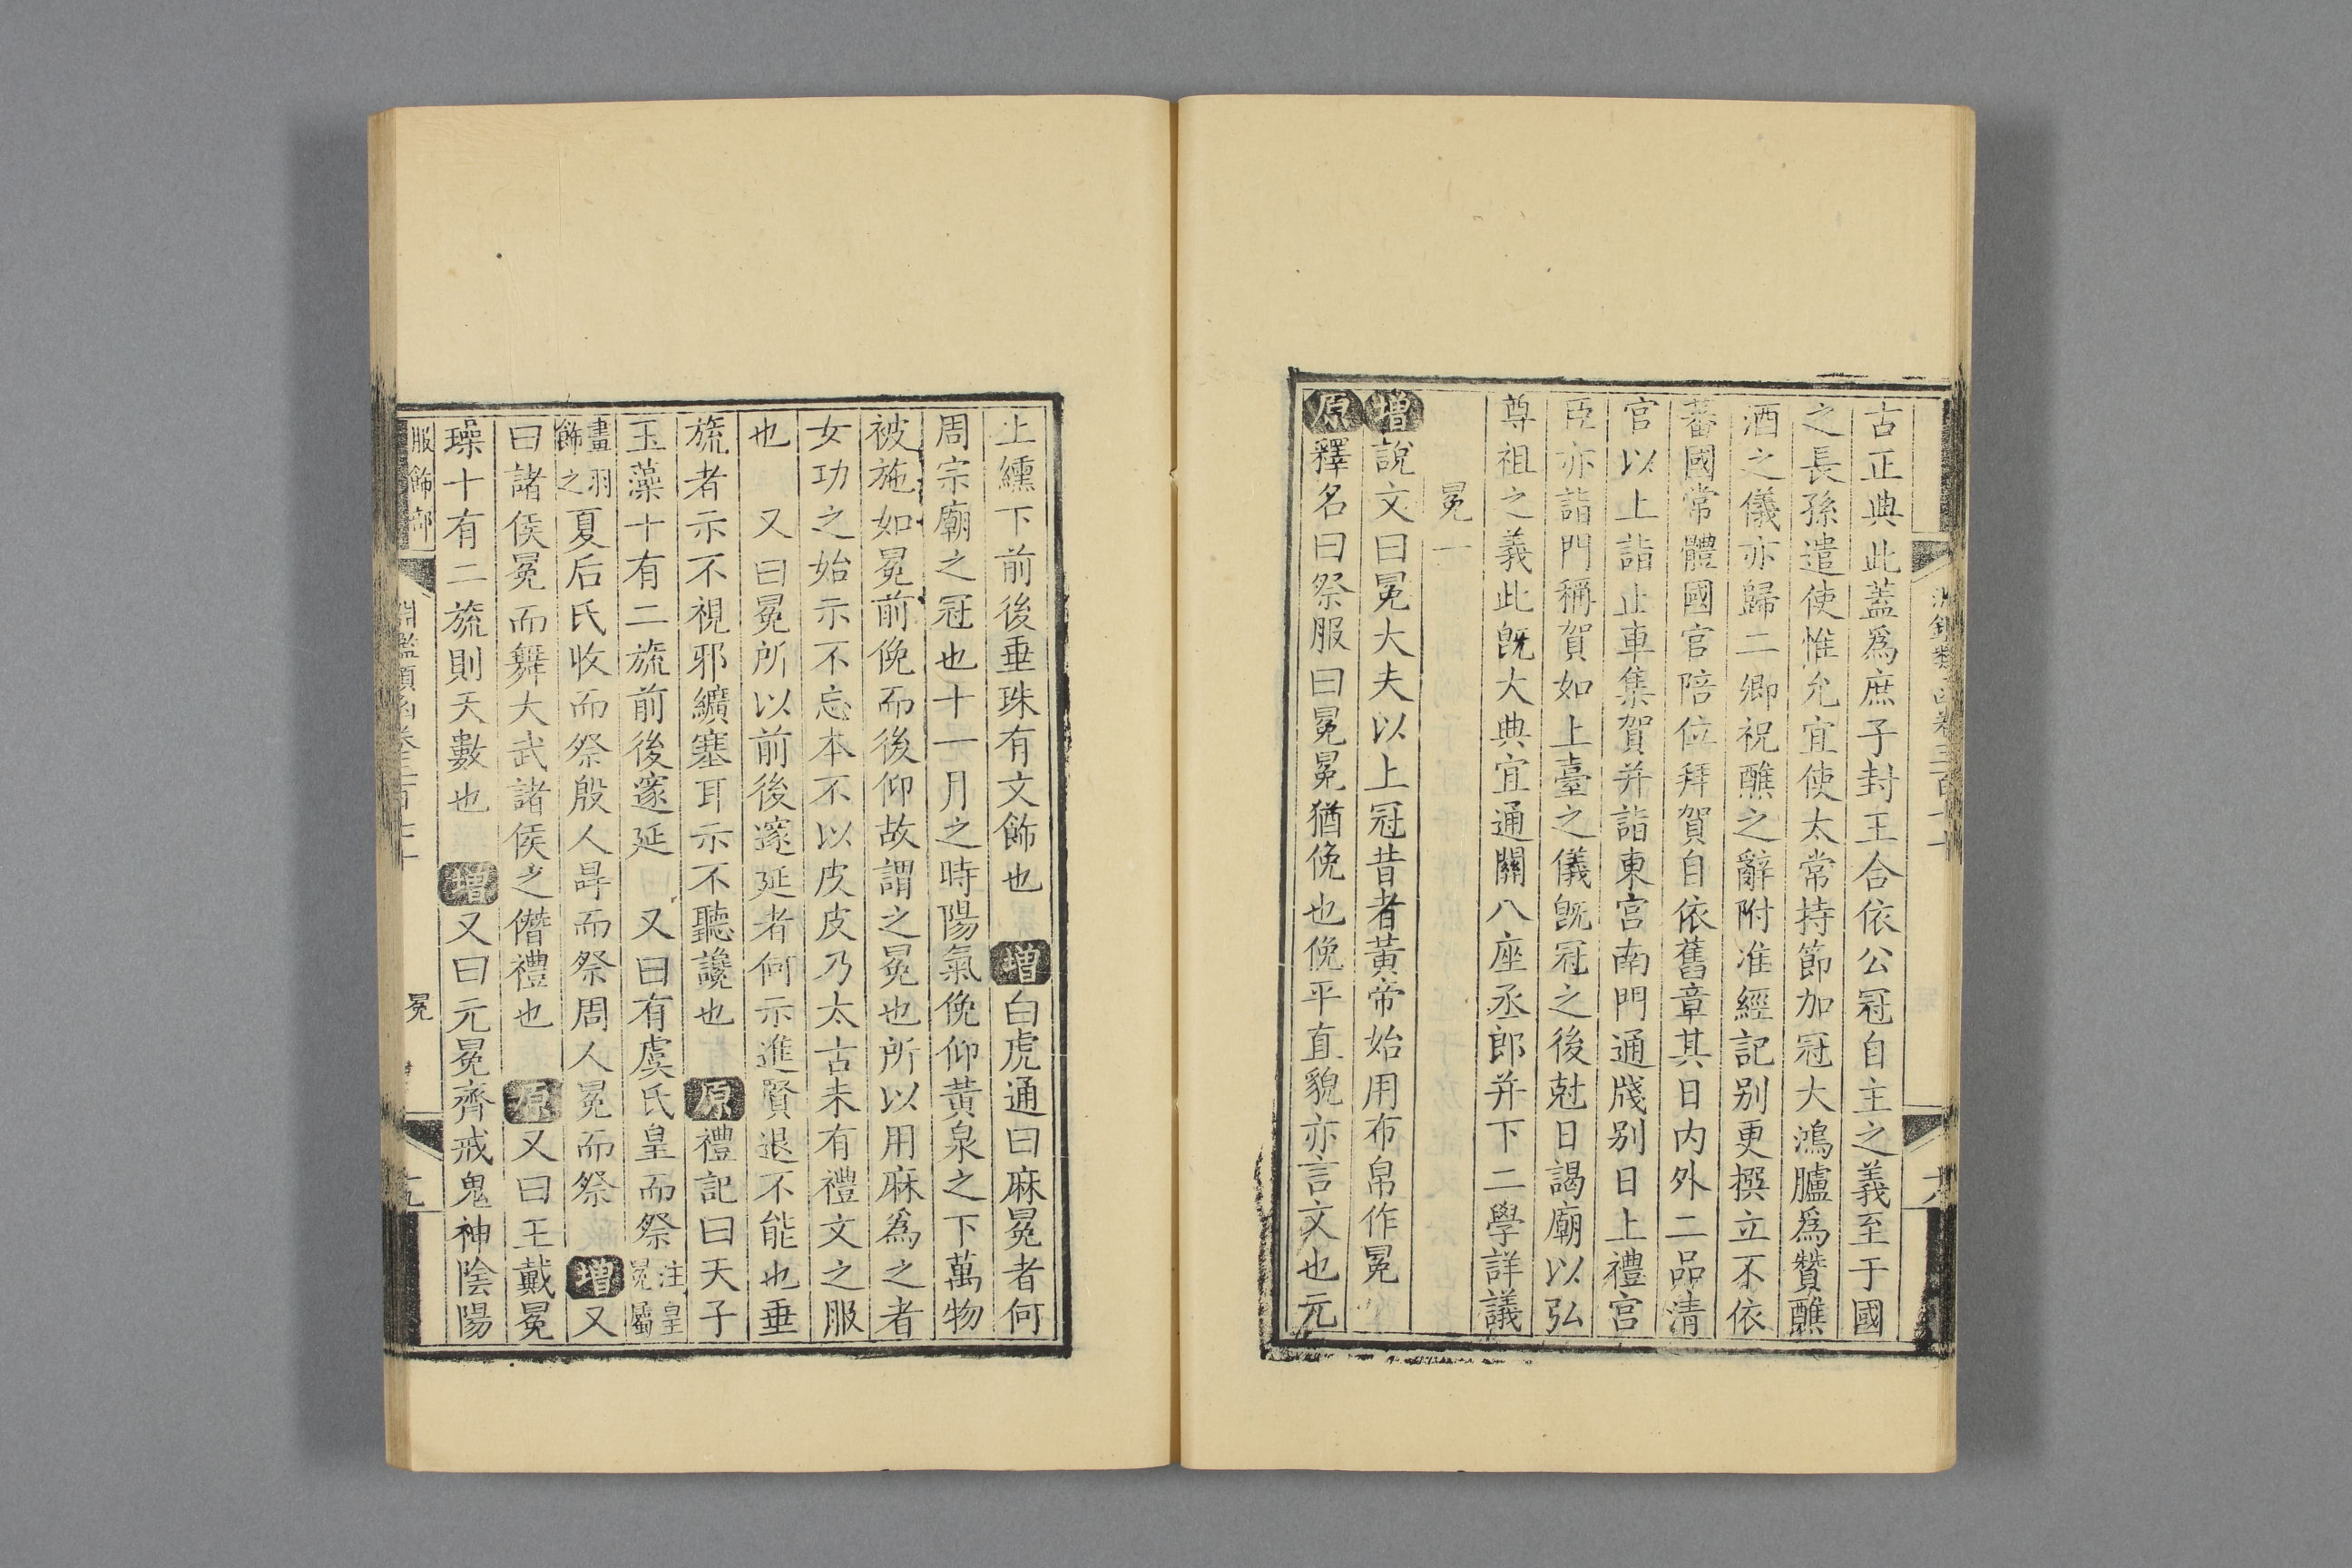 古正典此蓋爲庶子封王合依公冠自主之義至于國
之長孫遣使惟允宜使太常持節加冠大鴻臚爲贊醮
酒之儀亦歸二卿祝醮之辭附准經記别更撰立不依
蕃國常體國官陪位拜賀自依舊章其日内外二品清
官以上詣止車集賀并詣東宫南門通牋别日上禮宫
臣亦詣門稱賀如上臺之儀旣冠之後尅日謁廟以弘
尊祖之義此旣大典宜通關八座丞郎并下二學詳議
冕一
增說文曰冕大夫以上冠昔者黃帝始用布帛作冕
原釋名曰祭服曰冕冕猶俛也俛平直貌亦言文也元
上纁下前後垂珠有文飾也 增白虎通曰麻冕者何
周宗廟之冠也十一月之時陽氣俛仰黄泉之下萬物
被施如冕前俛而後仰故謂之冕也所以用麻爲之者
女功之始示不忘本不以皮皮乃太古未有禮文之服
也 又曰冕所以前後邃延者何示進賢退不能也垂
旒者示不視邪纊塞耳示不聽讒也 原禮記曰天子
玉藻十有二旒前後邃延 又曰有虞氏皇而祭注皇冕屬
畫羽飾之夏后氏收而祭殷人冔而祭周人冕而祭 增又
曰諸侯冕而舞大武諸侯之僭禮也 原又曰王戴冕
璪十有二旒則天數也 增又曰元冕齊戒鬼神陰陽
服飾部
淵鑑類函卷三百七十
冕